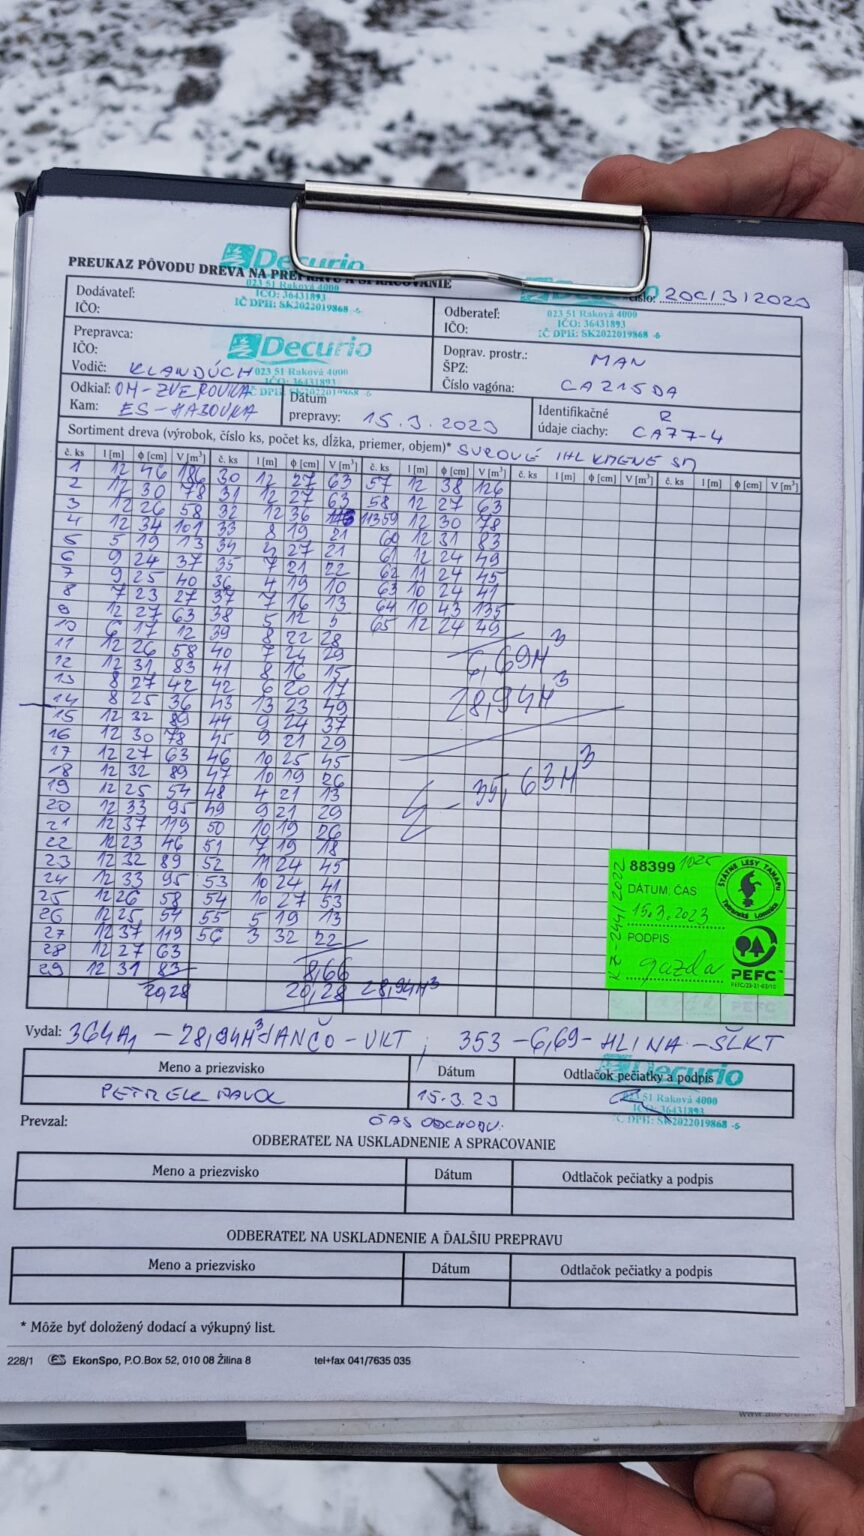 PREUKAZ PÔVODU DREVA NA PREPRAVU A SPRACOVANIE
Decurio
023 51 Raková 4000
IČO: 36431893
IČ DPH: SK2022019868 -6-
Dodávateľ:
IČO:
číslo: 20C/3/2023
Odberateľ:
IČO:
023 51 Raková 4000
IČO: 36431893
IČ DPH: SK2022019868 -6-
Prepravca:
IČO:
Vodič: KLANDÚCH
Decurio
023 51 Raková 4000
IČO: 36431893
Doprav. prostr.: MAN
ŠPZ:
Číslo vagóna: CA215DA
Odkiaľ: OM-ZVEROVKA
Kam: ES-HABOVKA
Dátum
prepravy: 15.3.2023
Identifikačné R
údaje ciachy: CA77-4
Sortiment dreva (výrobok, číslo ks, počet ks, dĺžka, priemer, objem)* SUROVÉ IHL KMENE SM
č. ks l [m] ϕ [cm] V [m³] č. ks l [m] ϕ [cm] V [m³] č. ks l [m] ϕ [cm] V [m³] č. ks l [m] ϕ [cm] V [m³] č. ks l [m] ϕ [cm] V [m³]
1 12 46 186 30 12 27 63 57 12 38 126
2 12 30 78 31 12 27 63 58 12 27 63
3 12 26 58 32 12 36 113 59 12 30 78
4 12 34 101 33 8 19 21 60 12 31 83
5 5 19 13 34 27 21 61 12 24 49
6 9 24 37 35 7 21 22 62 11 24 45
7 9 25 40 36 4 19 10 63 10 24 41
8 7 23 27 37 7 16 13 64 10 43 135
9 12 27 63 38 5 12 5 65 12 24 49
10 6 17 12 39 8 22 28
11 12 26 58 40 7 24 29
12 12 31 83 41 8 16 15
13 8 27 42 42 6 20 17
14 8 25 36 43 13 23 49
15 12 32 89 44 9 24 37
16 12 30 78 45 9 21 29
17 12 27 63 46 10 25 45
18 12 32 89 47 10 19 26
19 12 25 54 48 4 21 13
20 12 33 95 49 9 21 29
21 12 37 119 50 10 19 26
22 12 23 46 51 7 19 18
23 12 32 89 52 11 24 45
24 12 33 95 53 10 24 41
25 12 26 58 54 10 27 53
26 12 25 54 55 5 19 13
27 12 37 119 56 3 32 22
28 12 27 63
29 12 31 83
6,69M³
28,94M³
35,63M³
8,66
20,28 20,28 28,94M³
88399 1025
ŠTÁTNE LESY TANAPU
Tatranská Lomnica
DÁTUM, ČAS
15.3.2023
PODPIS
gazda
PEFC
Vydal: 364A1 – 28,94M³ JANČO-VKT ; 353 – 6,69 – HLINA – ŠLKT
Meno a priezvisko Dátum Odtlačok pečiatky a podpis
PETREK PAVOL 15.3.23
Decurio
023 51 Raková 4000
IČO: 36431893
IČ DPH: SK2022019868 -6-
Prevzal: ČAS ODCHODU:
ODBERATEĽ NA USKLADNENIE A SPRACOVANIE
Meno a priezvisko Dátum Odtlačok pečiatky a podpis
ODBERATEĽ NA USKLADNENIE A ĎALŠIU PREPRAVU
Meno a priezvisko Dátum Odtlačok pečiatky a podpis
* Môže byť doložený dodací a výkupný list.
228/1 EkonSpo, P.O.Box 52, 010 08 Žilina 8 tel+fax 041/7635 035